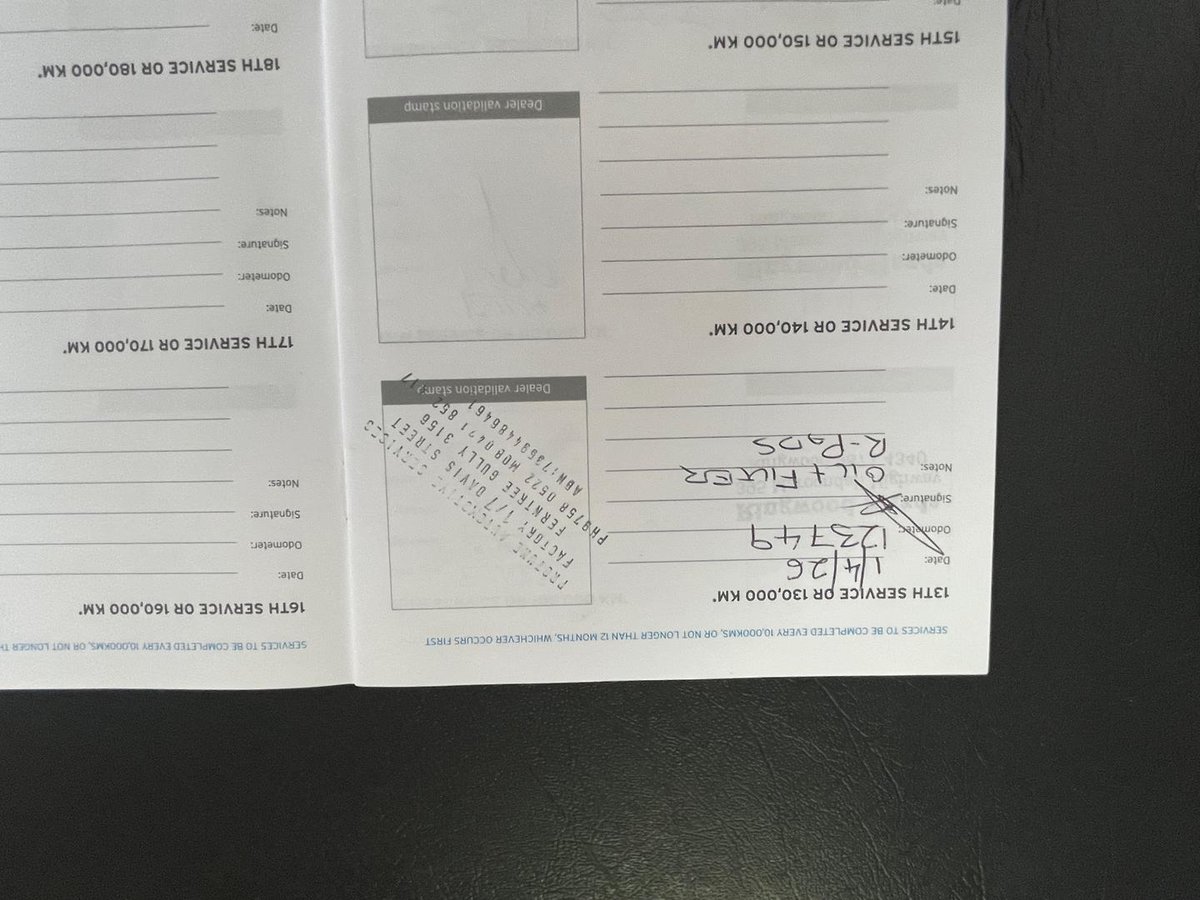 SERVICES TO BE COMPLETED EVERY 10,000KMS, OR NOT LONGER THAN 12 MONTHS, WHICHEVER OCCURS FIRST
13TH SERVICE OR 130,000 KM*
Date: 1/4/26
Odometer: 123749
Signature:
Notes: OIL + FILTER
R-PADS
PROTUNE AUTOMOTIVE SERVICES
FACTORY 1/7 DAVIS STREET
FERNTREE GULLY 3156
PH9758 0522 MOB 0421 852
ABN:17369486461
Dealer validation stamp
14TH SERVICE OR 140,000 KM*
Date:
Odometer:
Signature:
Notes:
Dealer validation stamp
15TH SERVICE OR 150,000 KM*
Date:
SERVICES TO BE COMPLETED EVERY 10,000KMS, OR NOT LONGER
16TH SERVICE OR 160,000 KM*
Date:
Odometer:
Signature:
Notes:
17TH SERVICE OR 170,000 KM*
Date:
Odometer:
Signature:
Notes:
18TH SERVICE OR 180,000 KM*
Date: